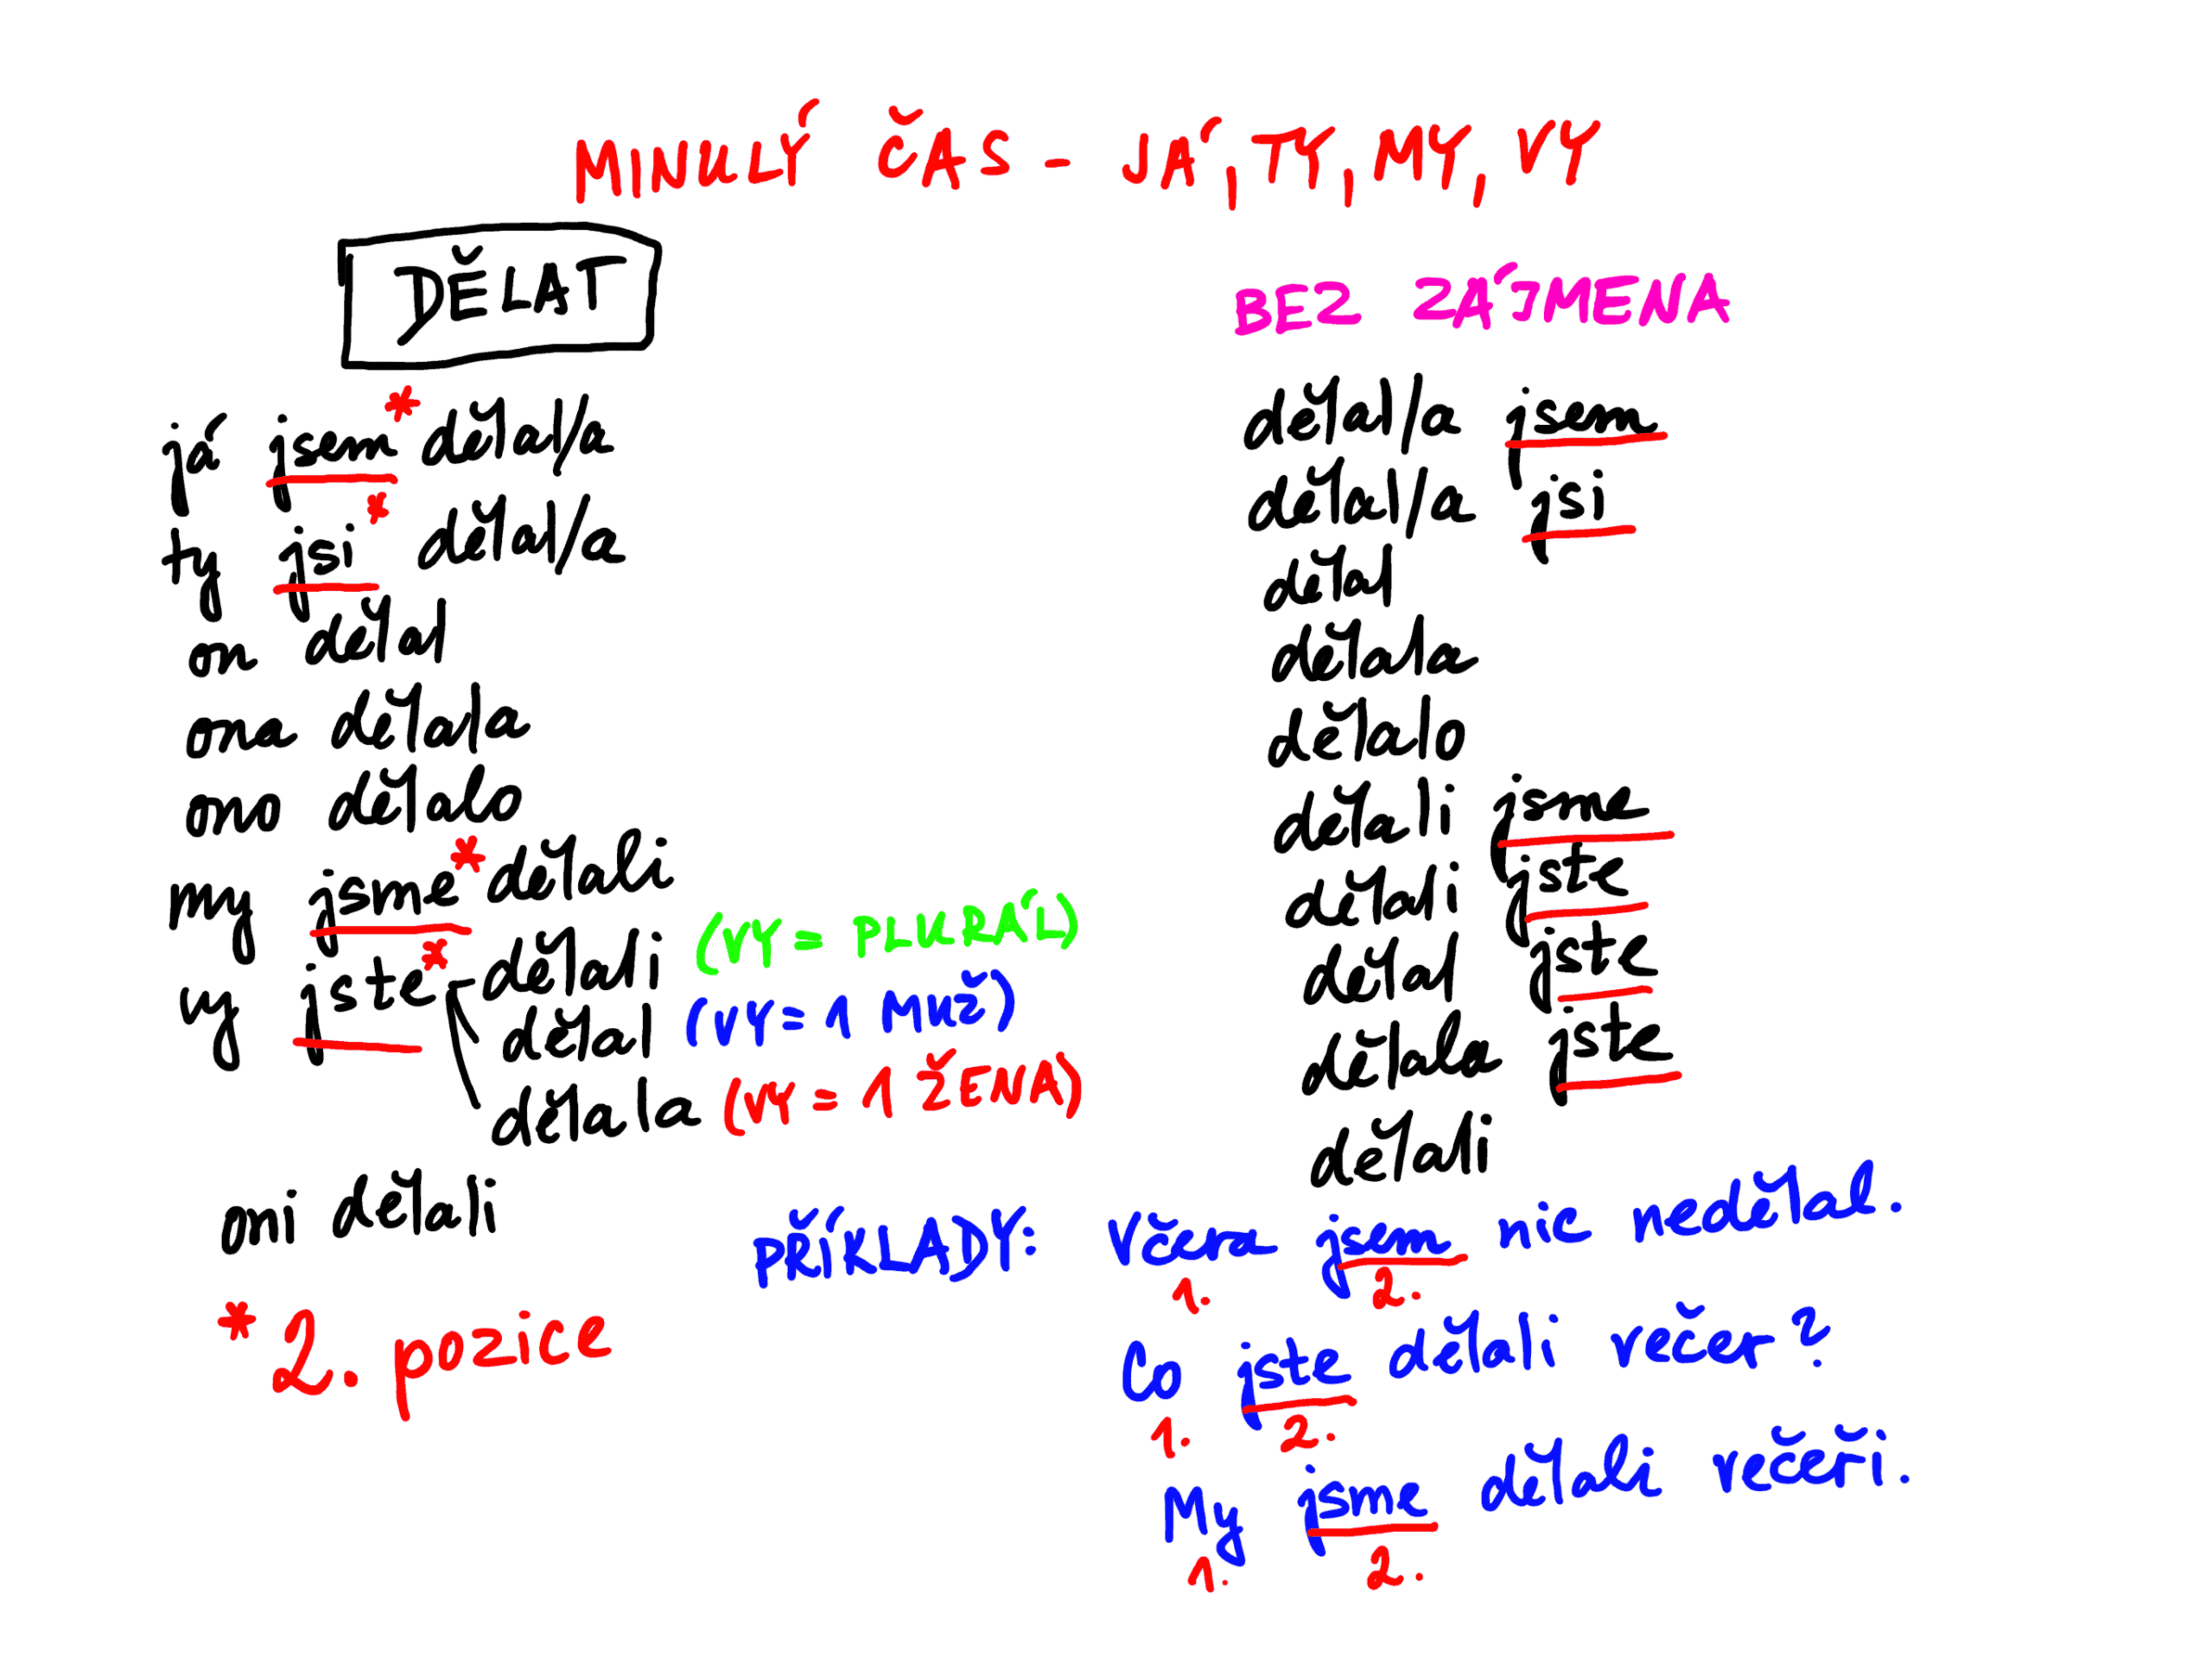 MINULÝ ČAS - JÁ, TY, MY, VY
DĚLAT
já jsem* dělal/a
ty jsi* dělal/a
on dělal
ona dělala
ono dělalo
my jsme* dělali
vy jste* dělali (VY = PLURÁL)
dělal (VY = 1 MUŽ)
dělala (VY = 1 ŽENA)
oni dělali
* 2. pozice
BEZ ZÁJMENA
dělal/a jsem
dělal/a jsi
dělal
dělala
dělalo
dělali jsme
dělali jste
dělal jste
dělala jste
dělali
PŘÍKLADY: Včera jsem nic nedělal.
1. 2.
Co jste dělali večer?
1. 2.
My jsme dělali večeři.
1. 2.